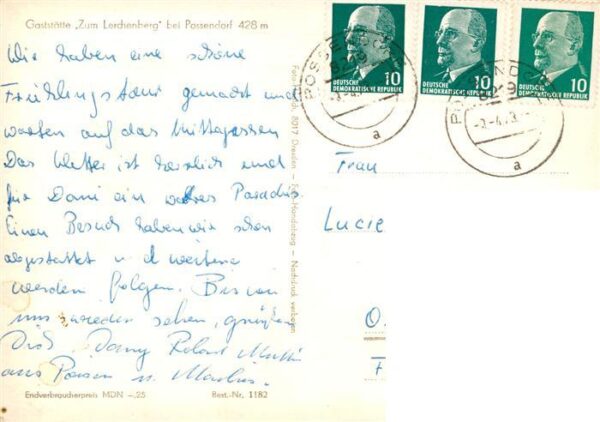 Gaststätte „Zum Lerchenberg" bei Possendorf 428 m
Wir haben eine schöne
Frühlingstour gemacht und
warten auf das Mittagessen
Das Wetter ist herrlich und
für Dani ein wahres Paradies
Einen Besuch haben wir schon
abgestattet u d weitere
werden folgen. Bis wir
uns wieder sehen, grüßen
Dich Dany Roland Mutti
aus u.
Endverbraucherpreis MDN –,25 Best.-Nr. 1182
8217 Dresden Foto-Handabzug — Nachdruck verboten
DEUTSCHE DEMOKRATISCHE REPUBLIK 10
DEUTSCHE DEMOKRATISCHE REPUBLIK 10
DEUTSCHE DEMOKRATISCHE REPUBLIK 10
POSSENDORF
a
POSSENDORF
a
Frau
Lucie
O.
F